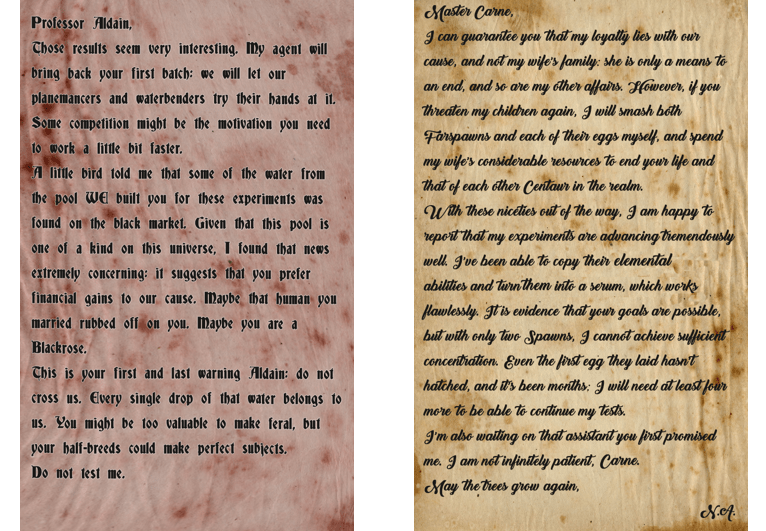 Professor Aldain,
Those results seem very interesting. My agent will
bring back your first batch: we will let our
planemancers and waterbenders try their hands at it.
Some competition might be the motivation you need
to work a little bit faster.
A little bird told me that some of the water from
the pool WE built you for these experiments was
found on the black market. Given that this pool is
one of a kind on this universe, I found that news
extremely concerning: it suggests that you prefer
financial gains to our cause. Maybe that human you
married rubbed off on you. Maybe you are a
Blackrose.
This is your first and last warning Aldain: do not
cross us. Every single drop of that water belongs to
us. You might be too valuable to make feral, but
your half-breeds could make perfect subjects.
Do not test me.
Master Carne,
I can guarantee you that my loyalty lies with our
cause, and not my wife's family: she is only a means to
an end, and so are my other affairs. However, if you
threaten my children again, I will smash both
Farspawns and each of their eggs myself, and spend
my wife's considerable resources to end your life and
that of each other Centaur in the realm.
With these niceties out of the way, I am happy to
report that my experiments are advancing tremendously
well. I've been able to copy their elemental
abilities and turn them into a serum, which works
flawlessly. It is evidence that your goals are possible,
but with only two Spawns, I cannot achieve sufficient
concentration. Even the first egg they laid hasn't
hatched, and it's been months: I will need at least four
more to be able to continue my tests.
I'm also waiting on that assistant you first promised
me. I am not infinitely patient, Carne.
May the trees grow again,
N.A.